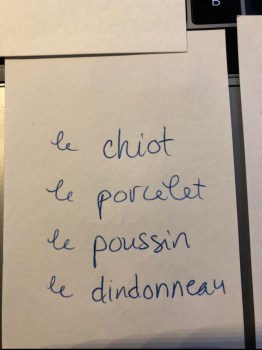 B
le chiot
le porcelet
le poussin
le dindonneau